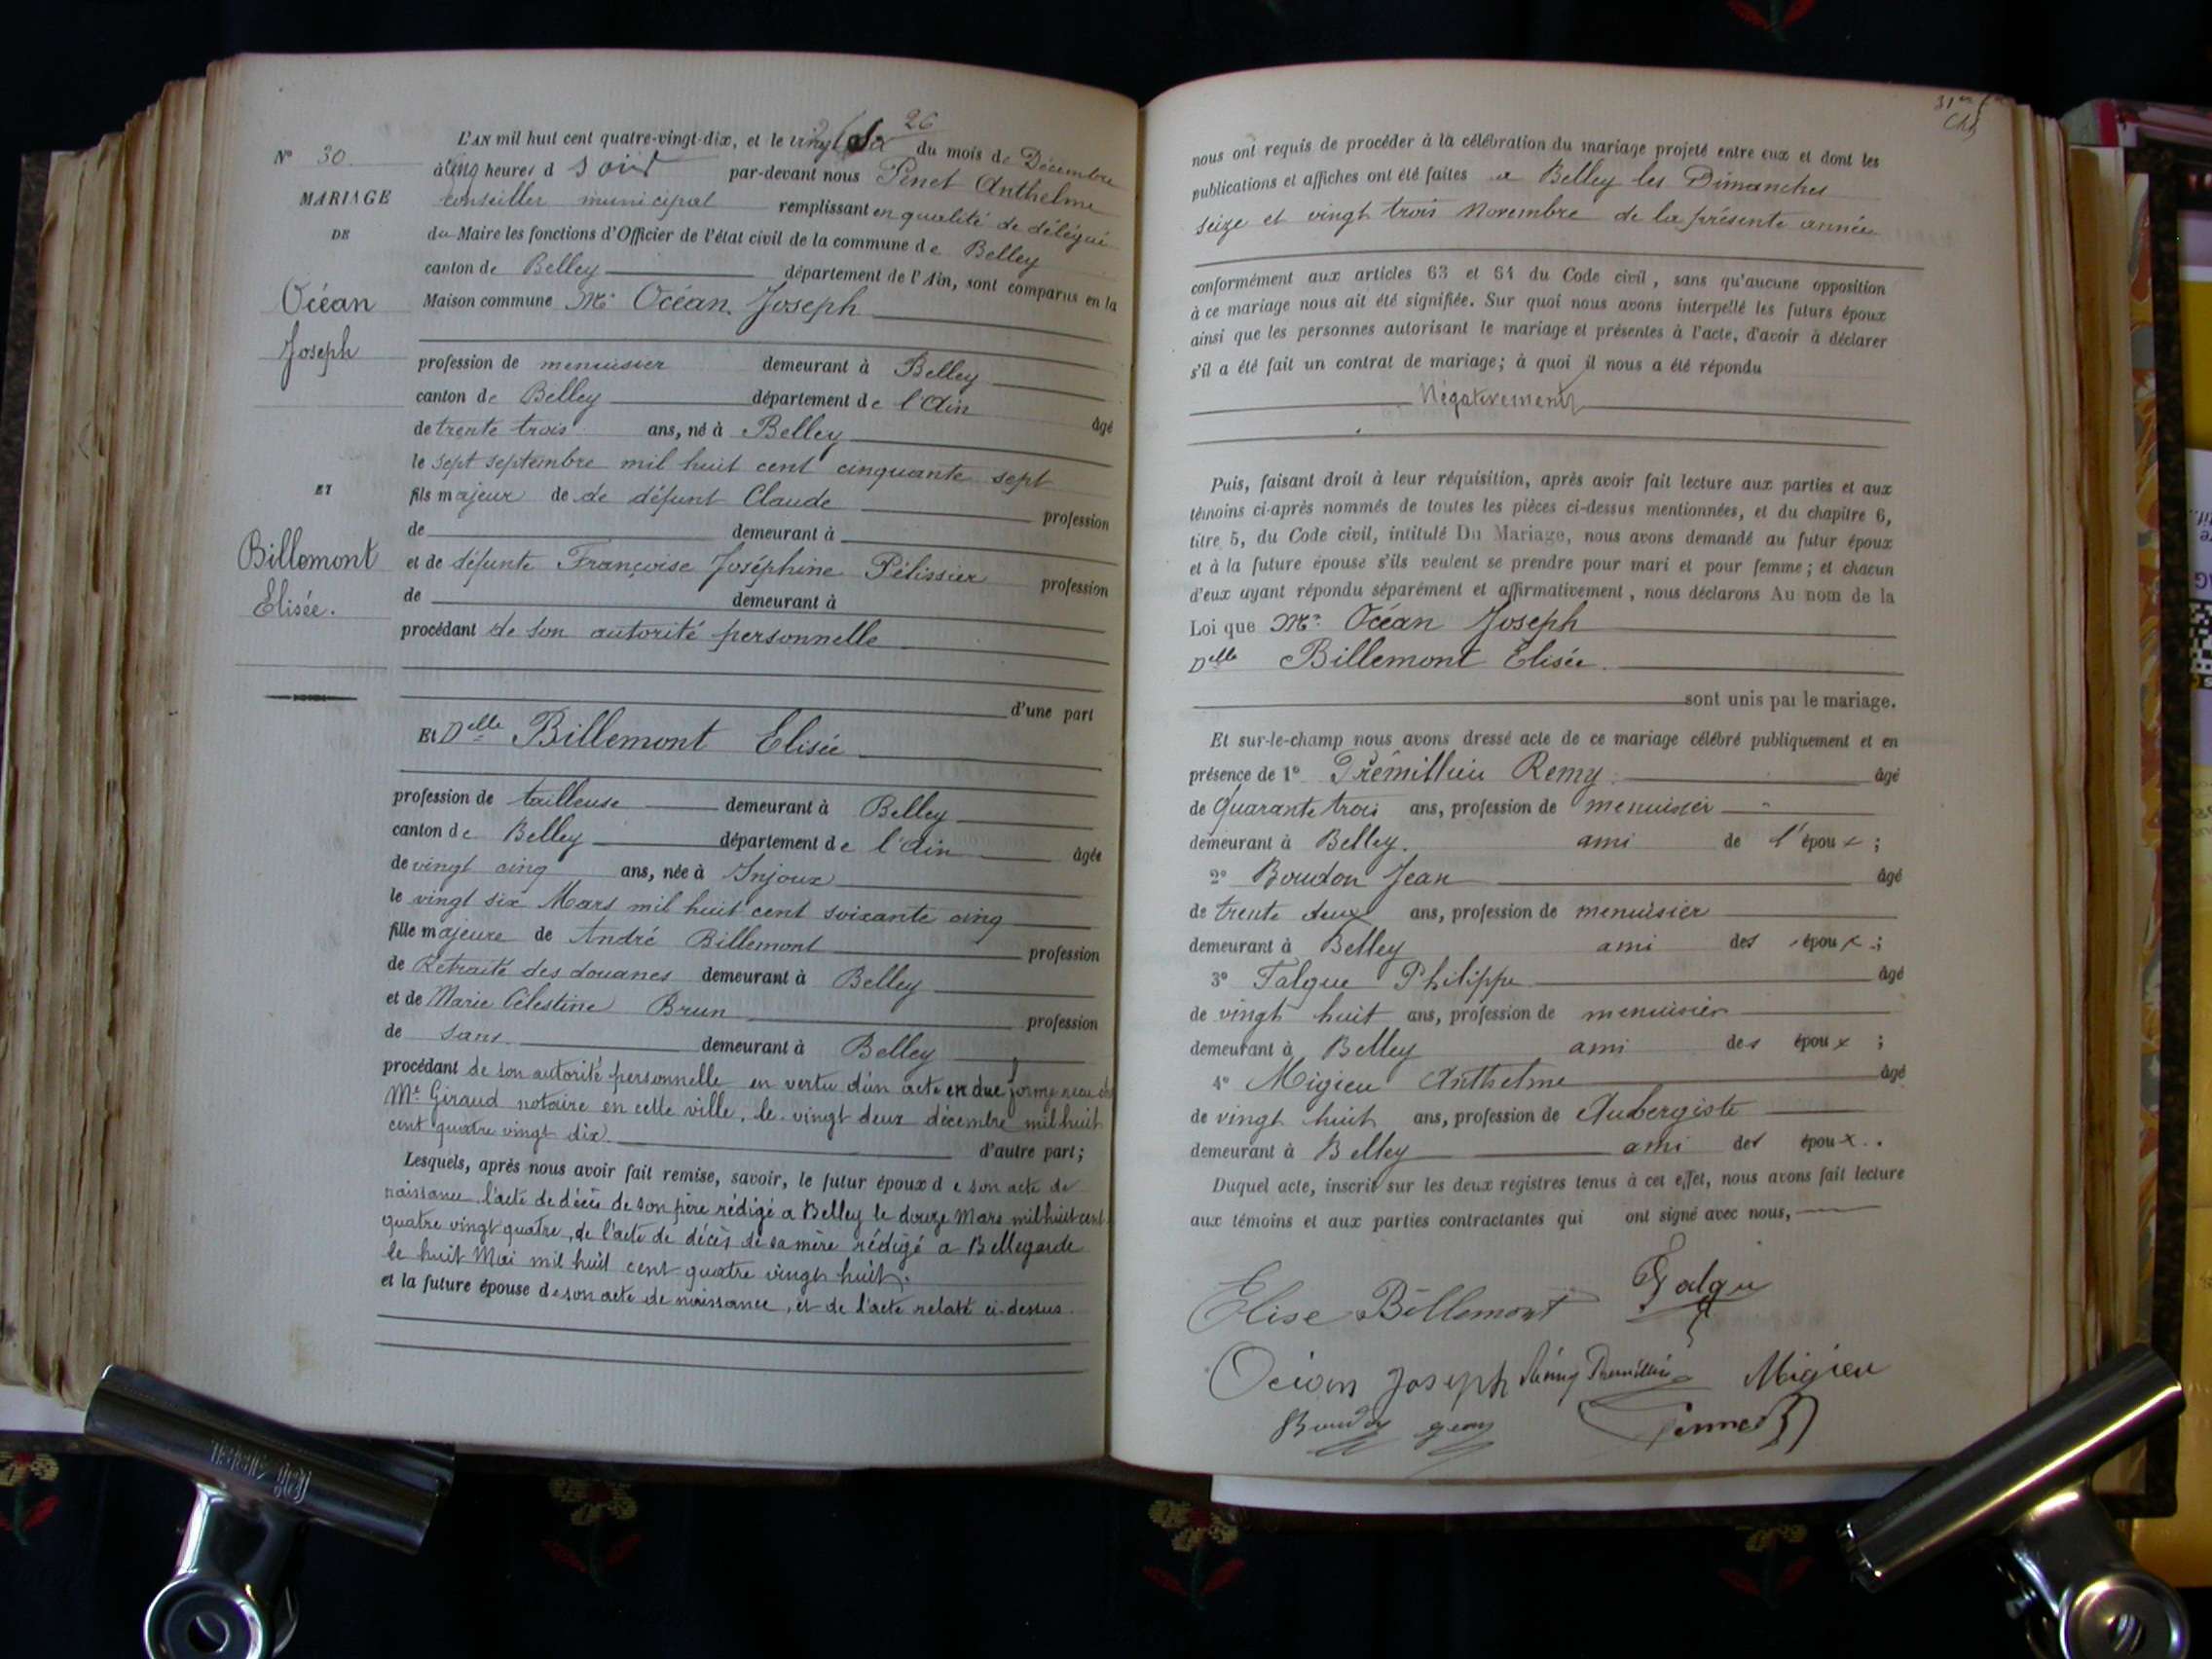 N° 30
MARIAGE
DE
Océan
Joseph
ET
Billemont
Elisée.
26
L'AN mil huit cent quatre-vingt-dix, et le vingt six du mois de Décembre
à cinq heures d soir par-devant nous Penet Anthelme
conseiller municipal remplissant en qualité de délégué
du Maire les fonctions d'Officier de l'état civil de la commune de Belley
canton de Belley département de l'Ain, sont comparus en la
Maison commune Mr Océan Joseph
profession de menuisier demeurant à Belley
canton de Belley département de l'Ain âgé
de trente trois ans, né à Belley
le sept septembre mil huit cent cinquante sept
fils majeur de de défunt Claude profession
de demeurant à
et de défunte Françoise Joséphine Pélissier profession
de demeurant à
procédant de son autorité personnelle
d'une part
Et Delle Billemont Elisée
profession de tailleuse demeurant à Belley
canton de Belley département de l'Ain âgée
de vingt cinq ans, née à Injoux
le vingt six Mars mil huit cent soixante cinq
fille majeure de André Billemont profession
de Retraité des douanes demeurant à Belley
et de Marie Célestine Brun profession
de sans demeurant à Belley
procédant de son autorité personnelle en vertu d'un acte en due forme reçu
Me Giraud notaire en cette ville, le vingt deux décembre mil huit
cent quatre vingt dix. d'autre part;
Lesquels, après nous avoir fait remise, savoir, le futur époux de son acte de
naissance l'acte de décès de son père rédigé a Belley le douze Mars mil huit cent
quatre vingt quatre, de l'acte de décès de sa mère rédigé a Bellegarde
le huit Mai mil huit cent quatre vingt huit.
et la future épouse de son acte de naissance, et de l'acte relaté ci-dessus.
nous ont requis de procéder à la célébration du mariage projeté entre eux et dont les
publications et affiches ont été faites a Belley les Dimanches
seize et vingt trois Novembre de la présente année
conformément aux articles 63 et 64 du Code civil, sans qu'aucune opposition
à ce mariage nous ait été signifiée. Sur quoi nous avons interpellé les futurs époux
ainsi que les personnes autorisant le mariage et présentes à l'acte, d'avoir à déclarer
s'il a été fait un contrat de mariage; à quoi il nous a été répondu
Négativement
Puis, faisant droit à leur réquisition, après avoir fait lecture aux parties et aux
témoins ci-après nommés de toutes les pièces ci-dessus mentionnées, et du chapitre 6,
titre 5, du Code civil, intitulé Du Mariage, nous avons demandé au futur époux
et à la future épouse s'ils veulent se prendre pour mari et pour femme; et chacun
d'eux ayant répondu séparément et affirmativement, nous déclarons Au nom de la
Loi que Mr Océan Joseph
Delle Billemont Elisée.
sont unis par le mariage.
Et sur-le-champ nous avons dressé acte de ce mariage célébré publiquement et en
présence de 1° Prémillieu Remy âgé
de Quarante trois ans, profession de menuisier
demeurant à Belley. ami de l'époux;
2° Boudon Jean âgé
de trente deux ans, profession de menuisier
demeurant à Belley ami des époux;
3° Falque Philippe âgé
de vingt huit ans, profession de menuisier
demeurant à Belley ami des époux;
4° Migieu Anthelme âgé
de vingt huit ans, profession de Aubergiste
demeurant à Belley ami des époux.
Duquel acte, inscrit sur les deux registres tenus à cet effet, nous avons fait lecture
aux témoins et aux parties contractantes qui ont signé avec nous,
Elise Billemont Falque
Océan Joseph Rémy Prémillieu Migieu
Boudon